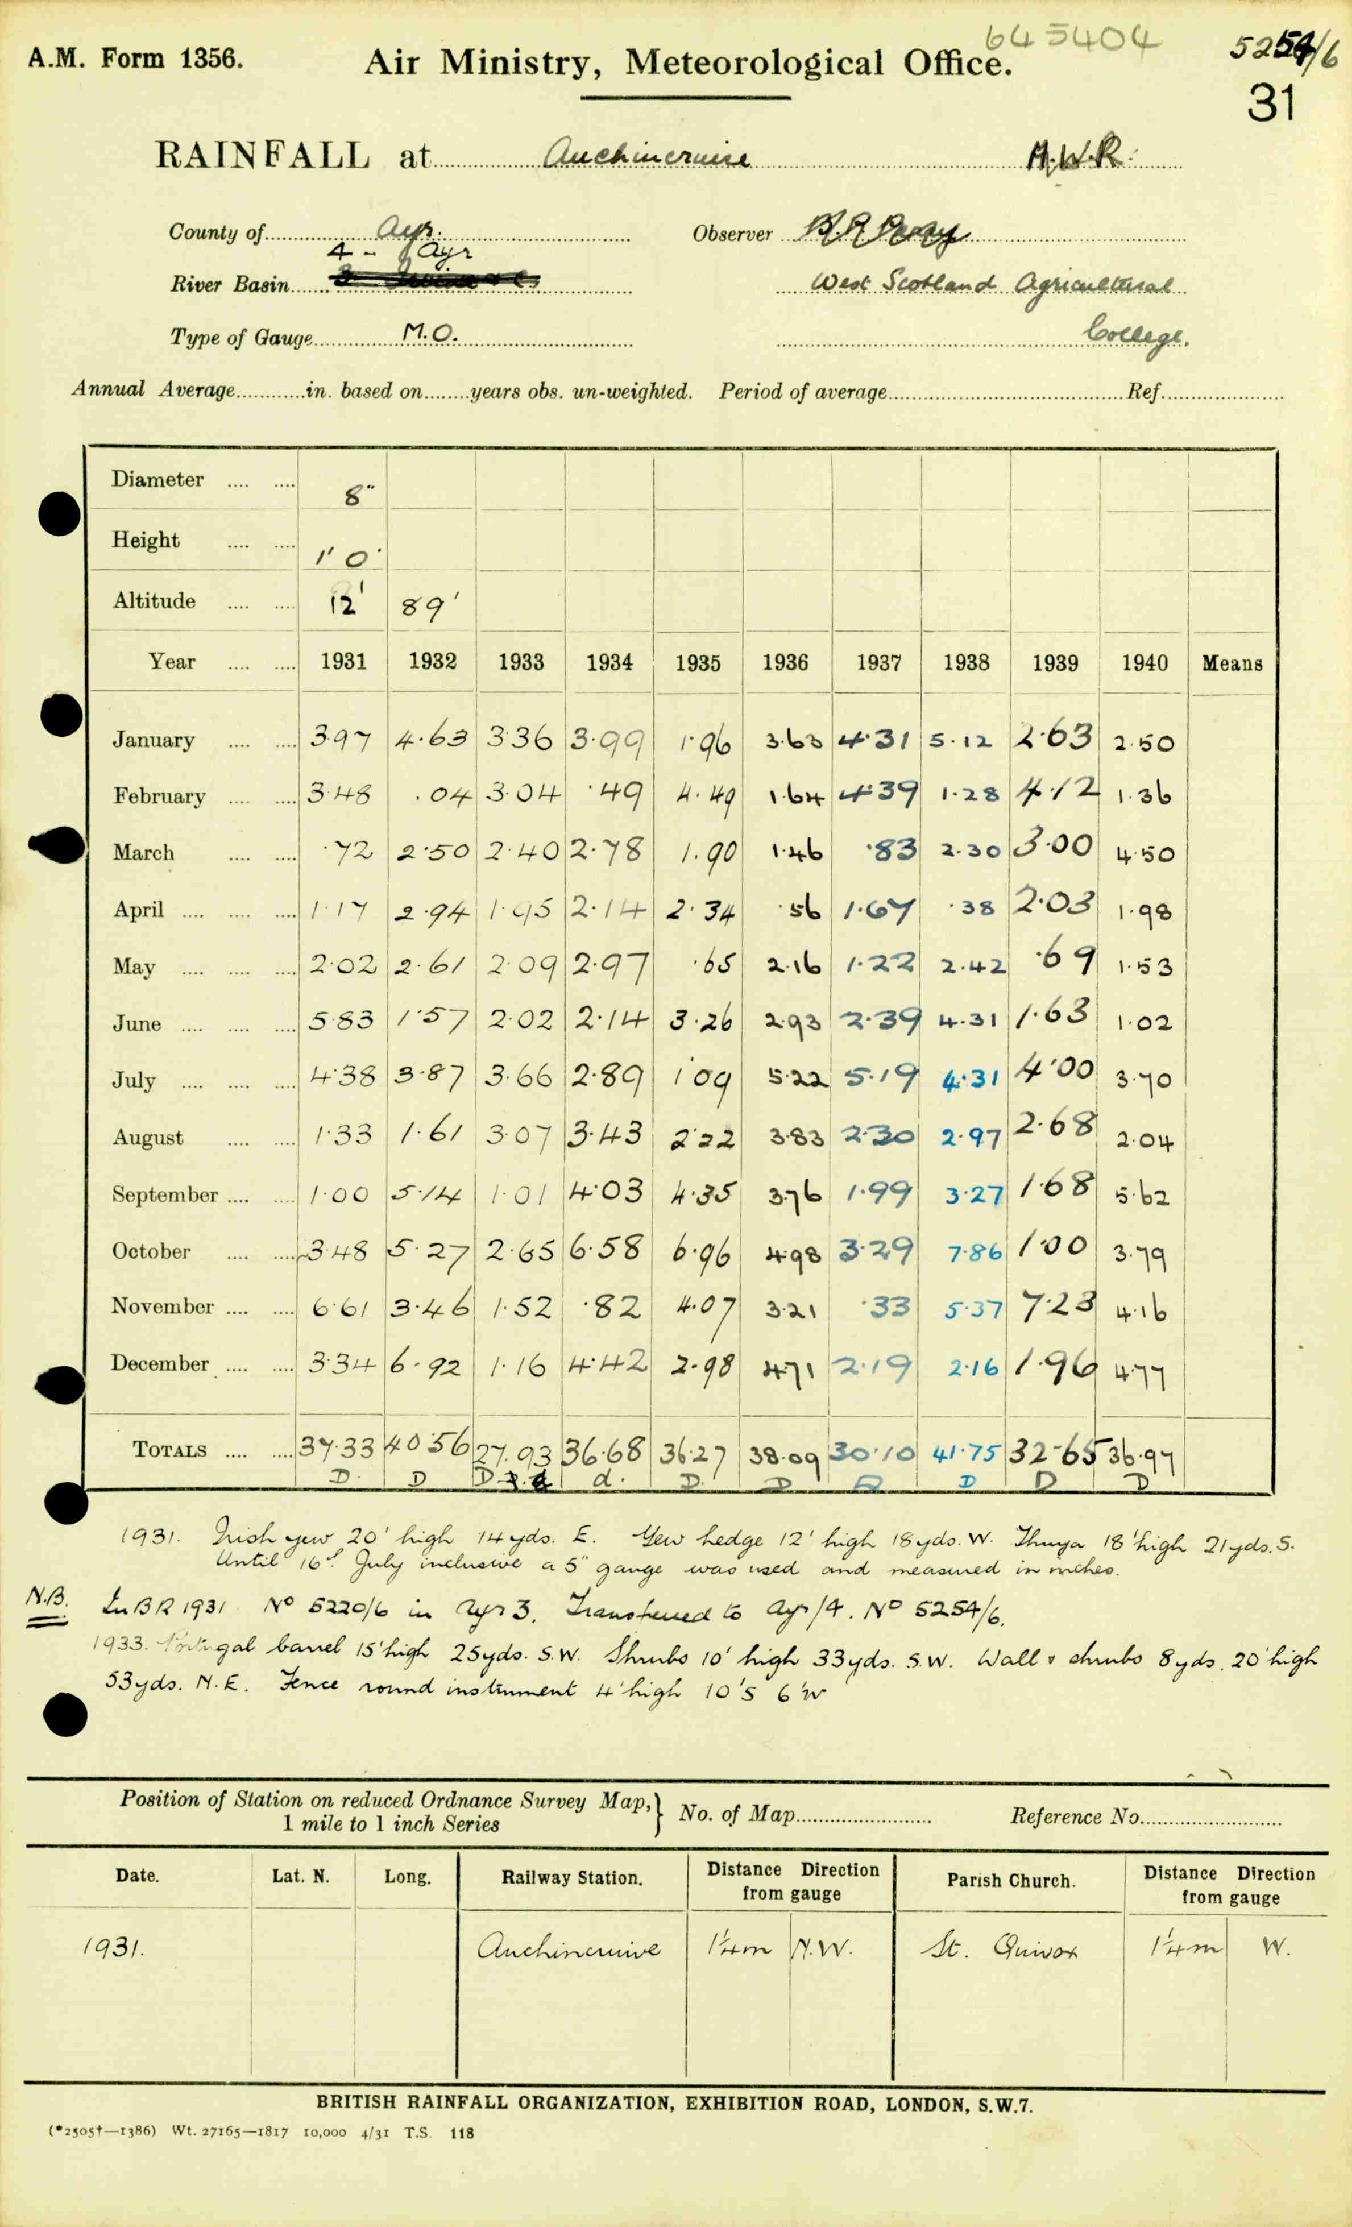 645404
A.M. Form 1356. Air Ministry, Meteorological Office. 5254/6
31
RAINFALL at Auchincruive M.W.R.
County of Ayr. Observer
4 - Ayr
River Basin West Scotland Agricultural
Type of Gauge M.O. College.
Annual Average in. based on years obs. un-weighted. Period of average Ref.
Diameter 8"
Height 1' 0"
Altitude 12' 89'
Year 1931 1932 1933 1934 1935 1936 1937 1938 1939 1940 Means
January 3.97 4.63 3.36 3.99 1.96 3.63 4.31 5.12 2.63 2.50
February 3.48 .04 3.04 .49 4.49 1.64 4.39 1.28 4.12 1.36
March .72 2.50 2.40 2.78 1.90 1.46 .83 2.30 3.00 4.50
April 1.17 2.94 1.95 2.14 2.34 .56 1.67 .38 2.03 1.98
May 2.02 2.61 2.09 2.97 .65 2.16 1.22 2.42 .69 1.53
June 5.83 1.57 2.02 2.14 3.26 2.93 2.39 4.31 1.63 1.02
July 4.38 3.87 3.66 2.89 1.09 5.22 5.19 4.31 4.00 3.70
August 1.33 1.61 3.07 3.43 2.22 3.83 2.30 2.97 2.68 2.04
September 1.00 5.14 1.01 4.03 4.35 3.76 1.99 3.27 1.68 5.62
October 3.48 5.27 2.65 6.58 6.96 4.98 3.29 7.86 1.00 3.79
November 6.61 3.46 1.52 .82 4.07 3.21 .33 5.37 7.23 4.16
December 3.34 6.92 1.16 4.42 2.98 4.71 2.19 2.16 1.96 4.77
TOTALS 37.33 40.56 27.93 36.68 36.27 38.09 30.10 41.75 32.65 36.97
D. D D d. D. D D D D D
1931. Irish yew 20' high 14 yds. E. Yew hedge 12' high 18 yds. W. Thuya 18' high 21 yds. S.
Until 16th July inclusive a 5" gauge was used and measured in inches.
N.B. In BR 1931 No 5220/6 in Ayr 3. Transferred to Ayr/4. No 5254/6.
1933. Portugal laurel 15' high 25 yds. S.W. Shrubs 10' high 33 yds. S.W. Wall & shrubs 8 yds. 20' high
53 yds. N.E. Fence round instrument 4' high 10'S 6'W
Position of Station on reduced Ordnance Survey Map, 1 mile to 1 inch Series } No. of Map Reference No.
Date. Lat. N. Long. Railway Station. Distance Direction from gauge Parish Church. Distance Direction from gauge
1931. Auchincruive 1¼m N.W. St. Quivox 1¼m W.
BRITISH RAINFALL ORGANIZATION, EXHIBITION ROAD, LONDON, S.W.7.
(*2505†—1386) Wt. 27165—1817 10,000 4/31 T.S. 118